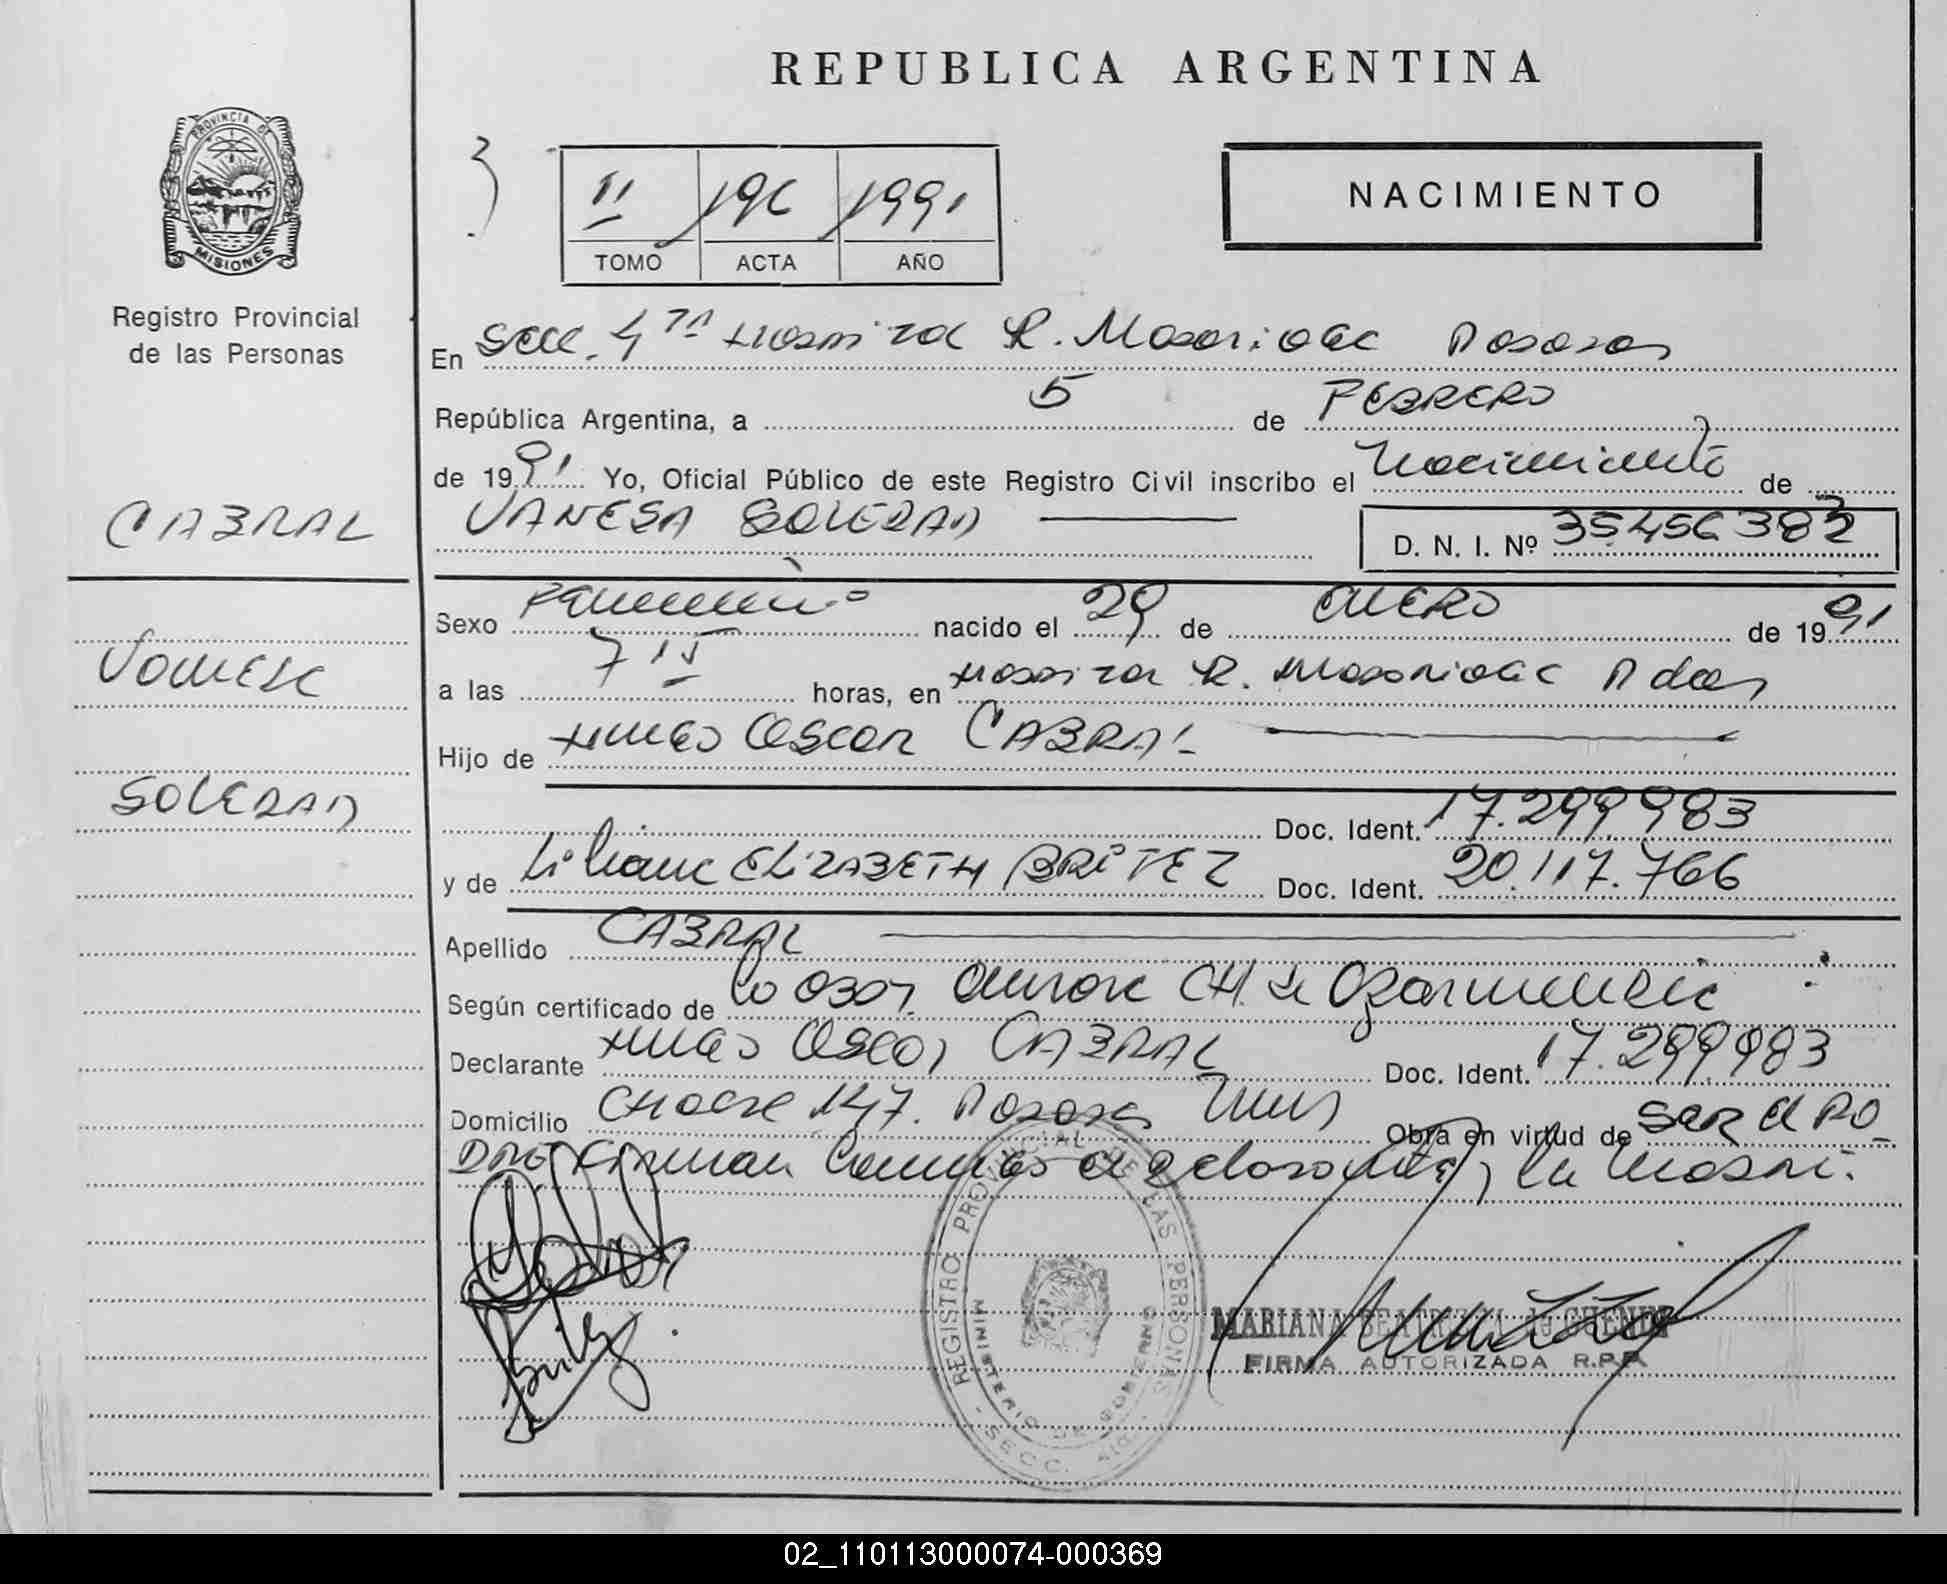 REPUBLICA ARGENTINA
PROVINCIA DE
MISIONES
Registro Provincial
de las Personas
II 196 1991
TOMO ACTA AÑO
NACIMIENTO
En Secc. 4ta Hospital R. Madariaga Posadas
República Argentina, a 5 de FEBRERO
de 1991 Yo, Oficial Público de este Registro Civil inscribo el Nacimiento de
CABRAL
VANESA SOLEDAD
D. N. I. Nº 35.456.383
Sexo Femenino nacido el 29 de ENERO de 1991
VANESA
a las 7 15 horas, en Hospital R. Madariaga Pdas
Hijo de HUGO OSCAR CABRAL
SOLEDAD
Doc. Ident. 17.299.983
y de Liliana ELIZABETH BRITEZ Doc. Ident. 20.117.766
Apellido CABRAL
Según certificado de
Declarante HUGO OSCAR CABRAL Doc. Ident. 17.299.983
Domicilio 147. Posadas Mnes Obra en virtud de ser el PA
DRE Firman
REGISTRO PROVINCIAL DE LAS PERSONAS
MINISTERIO DE GOBIERNO
SECC.
MARIANA BEATRIZ de
FIRMA AUTORIZADA R.P.P.
02_110113000074-000369